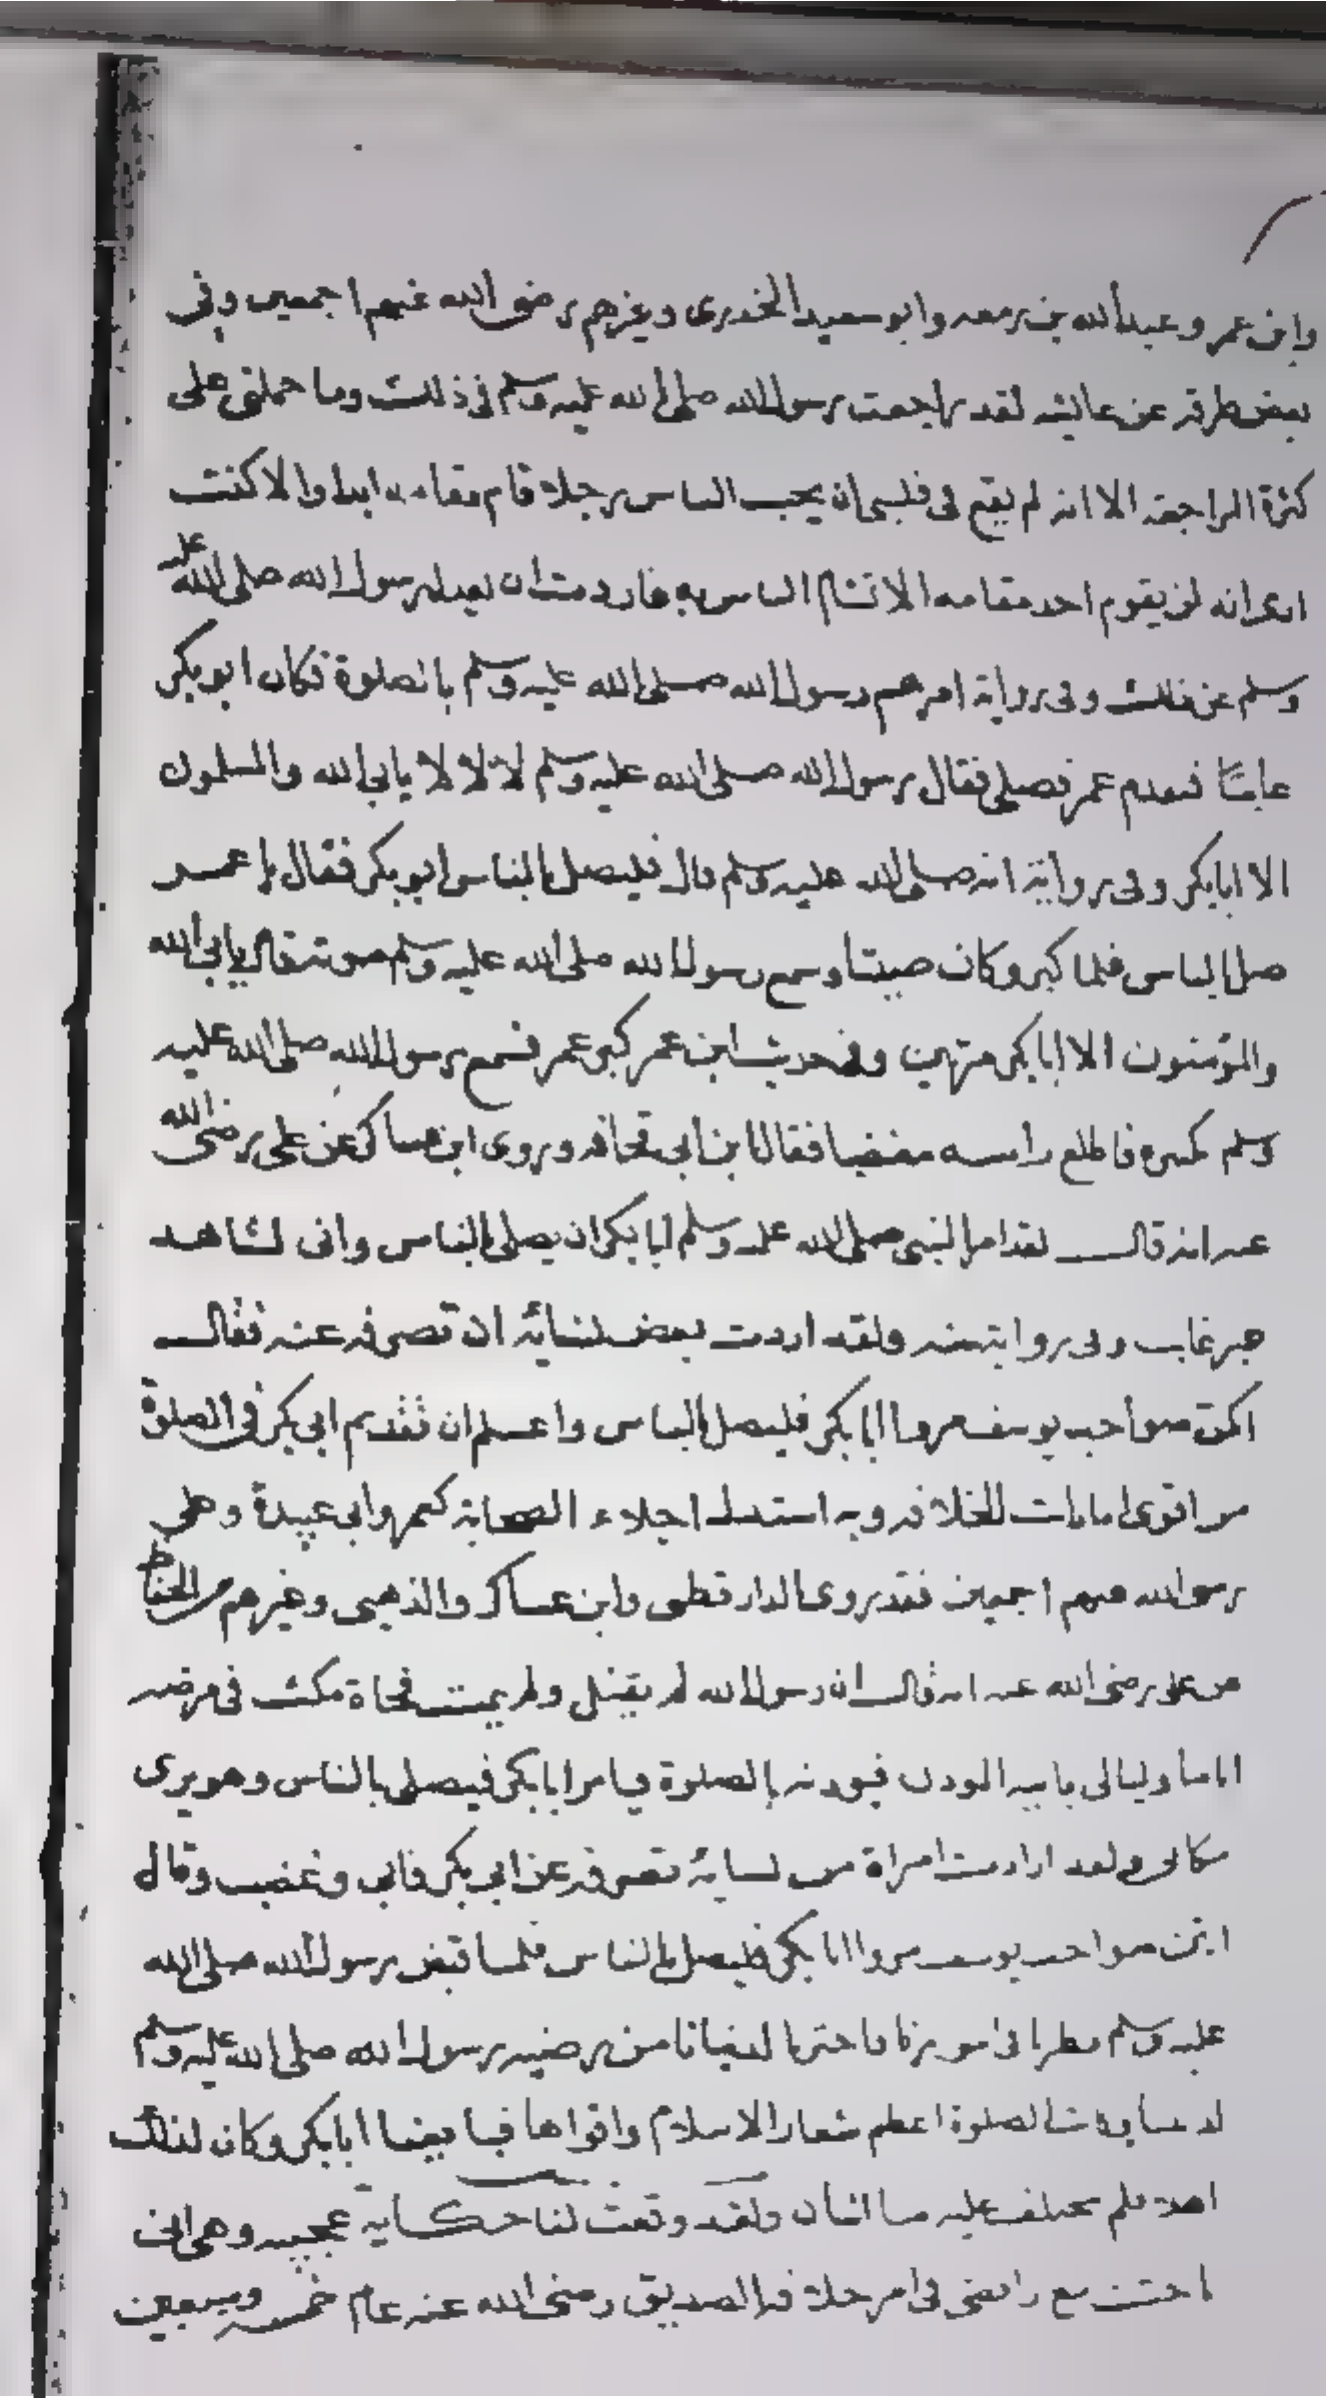 وابن عمر وعبد الله بن زمعه وابو سعيد الخدرى وغيرهم رضى الله عنهم اجمعين وفى
بعض طرقه عن عايشه لقد راجعت رسول الله صلى الله عليه وسلم فى ذلك وما حملنى على
كثرة المراجعة الا انه لم يقع فى قلبى ان يحب الناس رجلا قام مقامه ابدا والا كنت
ارى انه لن يقوم احد مقامه الا تشام الناس به فاردت ان يعدل رسول الله صلى الله عليه
وسلم عن ذلك وفى رواية امرهم رسول الله صلى الله عليه وسلم بالصلوة فكان ابو بكر
غايبا فتقدم عمر فصلى فقال رسول الله صلى الله عليه وسلم لا لا لا يابى الله والمسلمون
الا ابا بكر وفى رواية انه صلى الله عليه وسلم قال فليصل بالناس ابو بكر فقال يا عمر
صل بالناس فلما كبر وكان صيتا وسمع رسول الله صلى الله عليه وسلم صوته قال يابى الله
والمؤمنون الا ابا بكر مرتين وفى حديث ابن عمر كبر عمر فسمع رسول الله صلى الله عليه
وسلم تكبيره فاطلع راسه مغضبا فقال ابن ابى قحافه وروى ابن عساكر عن على رضى الله
عنه انه قال لقد امر النبى صلى الله عليه وسلم ابا بكر ان يصلى بالناس وانى لشاهد
غير غايب وفى رواية عنه ولقد اردت بعض نسائه ان تصرفه عنه فقال
انكن صواحب يوسف مروا ابا بكر فليصل بالناس واعلم ان تقديم ابى بكر فى الصلوة
من اقوى امامات للخلافه وبه استدل اجلاء الصحابة كعمر وابى عبيدة وعلى
رضى الله عنهم اجمعين فقد روى الدارقطنى وابن عساكر والذهبى وغيرهم من الحفاظ
عن على رضى الله عنه انه قال ان رسول الله لم يقتل ولم يمت فجاة مكث فى مرضه
اياما وليالى ياتيه الموذن فيوذنه بالصلوة فيامر ابا بكر فيصلى بالناس وهو يرى
مكانى ولقد ارادت امراة من نسايه تصرفه عن ابى بكر فابى وغضب وقال
انتن صواحب يوسف مروا ابا بكر فليصل بالناس فلما قبض رسول الله صلى الله
عليه وسلم نظرنا فى امورنا فاخترنا لدنيانا من رضيه رسول الله صلى الله عليه وسلم
لديننا وكانت الصلوة اعظم شعار الاسلام واقواها فبايعنا ابا بكر وكان لذلك
اهلا فلم يختلف عليه منا اثنان ولقد وقعت لنا حكاية عجيبه وهى انى
رافضى فى امر خلافة الصديق رضى الله عنه عام خمسه وسبعين